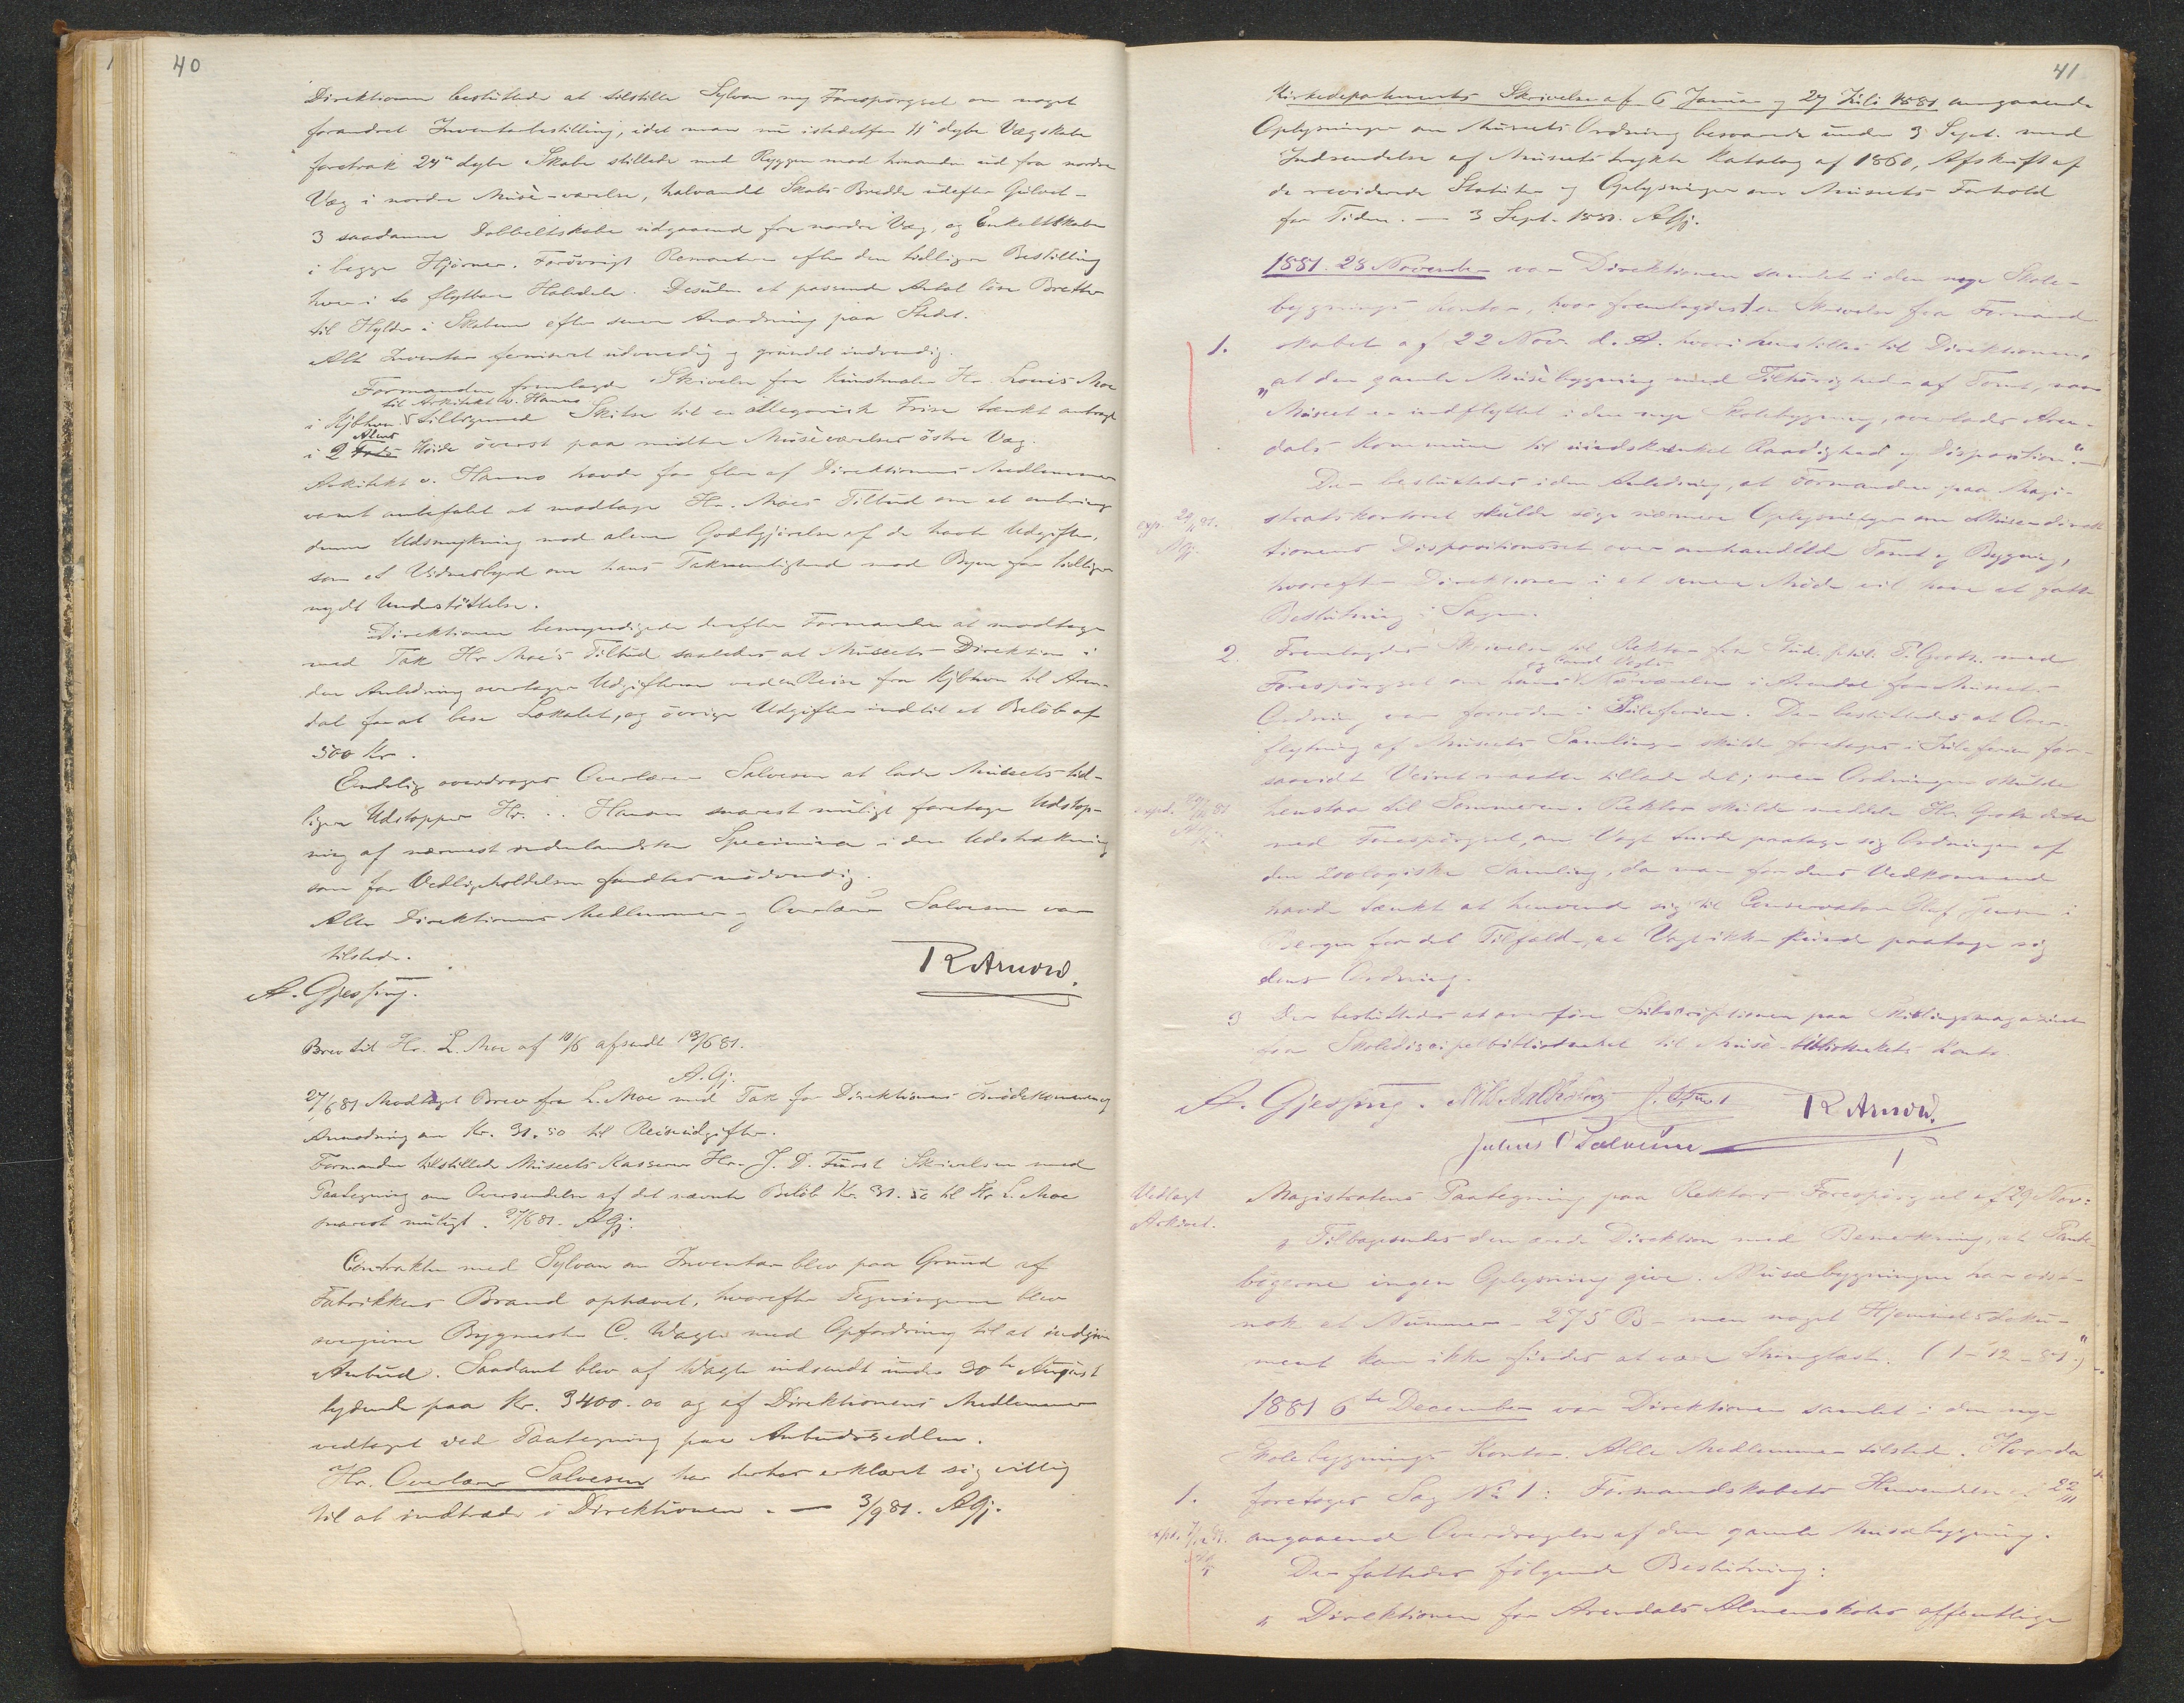 40
Direktionen besluttede at tilstille Sylvan ny Forespörgsel om noget
forandret Inventarbestilling, idet man nu istedetfor 11" dybe Vægskabe
foretrak 24" dybe Skabe stillede med Ryggen mod hinanden ud fra nordre
Væg i nordre Musè-værelse, halvandt Skabs Bredde udefter Gulvet –
3 saadanne Dobbeltskabe udgaaende fra nordre Væg, og Enkeltskabe
i begge Hjörner. Forövrigt Remontere efter den tidligere Bestilling
hver i to flytbare Halvdele. Desuden et passende Antal löse Bretter
til Hylder i Skabene efter senere Anordning paa Stedet.
Alt Inventar ferniseret udvendig og grundet indvendig.
Formanden fremlagde Skrivelse fra Kunstmaler Hr. Louis Moe
til Arkitekt v. Hanno
i Kjbhvn tilligemed Skitse til en allegorisk Frise tænkt anbragt
Alens
i 2 Fods Höide överst paa midtre Musèværelses östre Væg.
Arkitekt v. Hanno havde for flere af Direktionens Medlemmer
varmt anbefalet at modtage Hr. Moes Tilbud om at anbringe
denne Udsmykning mod alene Godtgjörelse af de havte Udgifter,
som et Vidnesbyrd om hans Taknemlighed mod Byen for tidligere
nydt Understöttelse.
Direktionen bemyndigede derefter Formanden at modtage
med Tak Hr Moe's Tilbud saaledes at Museets Direktion i
den Anledning overtager Udgifterne ved en Reise fra Kjbhvn til Aren-
dal for at bese Lokalet, og övrige Udgifter indtil et Belöb af
500 Kr.
Endelig overdroges Overlærer Salvesen at lade Museets tid-
ligere Udstopper Hr. . . Hansen snarest muligt foretage Udstop-
ning af nærmest indenlandske Specimina i den Udstrækning
som for Vedligeholdelsen fandtes nödvendig.
Alle Direktionens Medlemmer og Overlærer Salvesen var
tilstede.
R Arnow.
A. Gjessing.
Brev til Hr. L. Moe af 10/6 afsendt 13/6 81.
A. Gj.
27/6 81 Modtaget Brev fra L. Moe med Tak for Direktionens Imödekommen og
Anmodning om Kr. 31.50 til Reiseudgifter.
Formanden tilstillede Museets Kasserer Hr. J. D. Fürst Skrivelsen med
Paategning om Oversendelse af det nævnte Belöb Kr. 31.50 til Hr L. Moe
snarest muligt. 27/6 81. AGj.
Contrakten med Sylvan om Inventar blev paa Grund af
Fabrikkens Brand ophævet, hvorefter Tegningerne blev
overgivne Bygmester C. Wagle med Opfordring til at indgive
Anbud. Saadant blev af Wagle indsendt under 30te August
lydende paa Kr. 3400.00 og af Direktionens Medlemmer
vedtaget ved Paategning paa Anbudssedlen.
Hr. Overlærer Salvesen har derhos erklæret sig villig
til at indtræde i Direktionen. — 3/9 81. AGj.
41
Kirkedepartments Skrivelse af 6 Januar og 27 Juli 1881 angaaende
Oplysninger om Museets Ordning besvarede under 3 Sept. med
Indsendelse af Museets trykte Katalog af 1860, Afskrift af
de reviderede Statuter og Oplysninger om Museets Forhold
for Tiden. — 3 Sept. 1881. AGj.
1881. 28 November var Direktionen samlet i den nye Skole-
bygnings Kontor, hvor fremlagdes 1) en Skrivelse fra Formand-
1. skabet af 22 Nov. d. A. hvori henstilles til Direktionen
"at den gamle Musèbygning med Tilhörigheder af Tomt, naar
Museet er indflyttet i den nye Skolebygning, overlades Aren-
dals Kommune til uindskrænket Raadighed og Disposition." –
Der besluttedes i den Anledning, at Formanden paa Magi-
exp. 29/11 81. AGj.
stratskontoret skulde söge nærmere Oplysninger om Musèdirek-
tionens Dispositionsret over omhandlede Tomt og Bygning,
hvorefter Direktionen i et senere Möde vil have at fatte
Beslutning i Sagen.
2. Fremlagdes Skrivelse til Rektor fra Stud. phil. P. Groth med
og Cand Vogts
Forespörgsel om hans Nærværelse i Arendal for Museets
Ordning var fornöden i Juleferien. Der besluttedes at Over-
flytning af Museets Samlinger skulde foretages i Juleferien for-
saavidt Veiret maatte tillade det; men Ordningen skulde
henstaa til Sommeren. Rektor skulde meddele Hr. Groth dette
exped. 29/11 81 AGj.
med Forespörgsel, om Vogt turde paatage sig Ordningen af
den zoologiske Samling, da man for dens Vedkommende
havde tænkt at henvende sig til Conservator Olaf Jensen i
Bergen for det Tilfælde, at Vogt ikke kunde paatage sig
dens Ordning.
3 Der besluttedes at overföre Subskriptionen paa Skillingsmagazinet
fra Skolediscipelbibliotheket til Musè-bibliothekets Konto.
A. Gjessing. R Arnow.
Julius O Salvesen
Vedlagt
Arkivet.
Magistratens Paategning paa Rektors Forespörgsel af 29 Nov:
"Tilbagesendes den ærede Direktion med Bemerkning, at Pante-
bögerne ingen Oplysning give. Musèbygningen har vist-
nok et Nummer – 275 B – men noget Hjemmelsdoku-
ment kan ikke findes at være thinglæst. (1–12–81.)"
1881 6te December var Direktionen samlet i den nye
Skolebygnings Kontor. Alle Medlemmer tilstede. Hvorda
1. foretoges Sag No 1: Formandskabets Henvendelse af 22/11
angaaende Overdragelse af den gamle Musèbygning.
Der fattedes fölgende Beslutning:
"Direktionen for Arendals Almenskoles offentlige